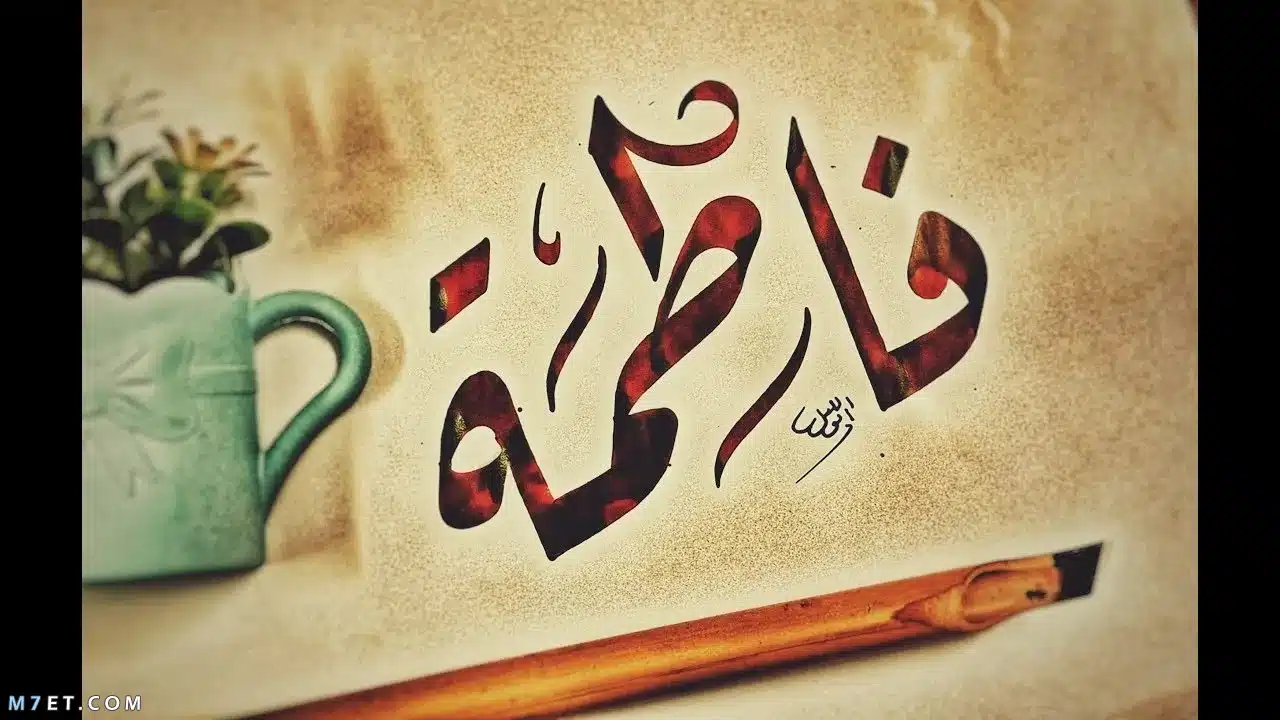 فاطمة
M7ET.COM